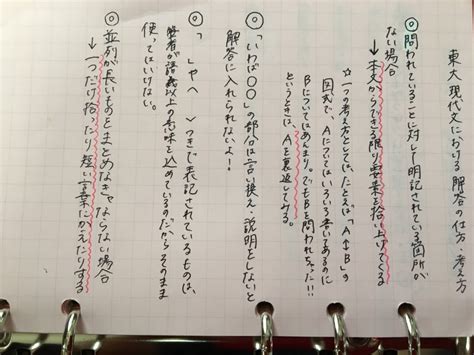 東大現代文における解答の仕方・考え方
◎問われていることに対して明記されている箇所が
ない場合
→本文からできる限り要素を拾い上げてくる
☆一つの考え方としては、たとえば「A↔B」の
図式で、Aについてはいろいろ書いてあるのに
Bについてはあんまり。でもBを問われちゃった!!
というときは、Aを裏返してみる。
◎「いわば〇〇」の部分は言い換え・説明をしないと
解答に入れられないよ!
◎「 」や〈 〉つきで表記されているものは、
筆者が語義以上の意味を込めているのだからそのまま
使ってはいけない。
◎並列が長いものをまとめなきゃならない場合
→一つだけ拾ったり短い言葉にかえたりする